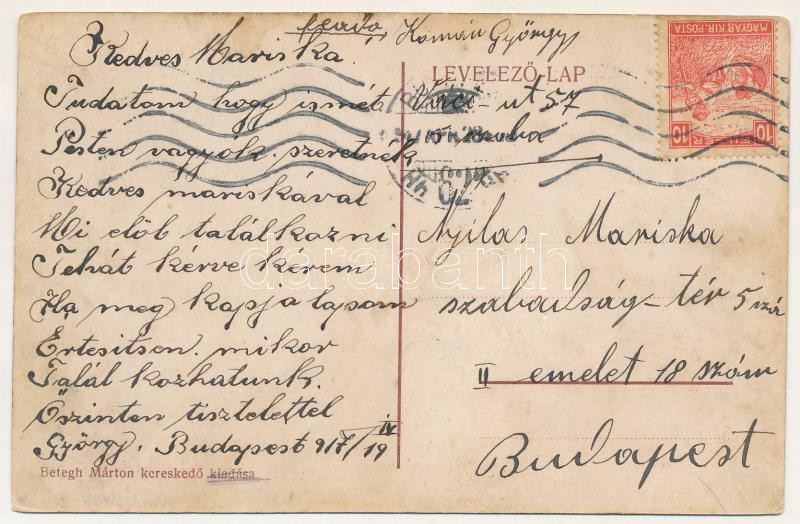 feladó Komán György
Váci-ut 57
szoba
Kedves Mariska.
Tudatom hogy ismét
Pesten vagyok. szeretnék
Kedves mariskával
Mi elöb találkozni
Tehát kérve kerem
Ha meg kapja lapom
Ertesitsen. mikor
Talál kozhatunk.
Őszinten tisztelettel
György. Budapest 917/IV 19
Betegh Márton kereskedő kiadása
LEVELEZŐ-LAP
MAGYAR KIR. POSTA
10 FILLÉR 10
Nyilas Mariska
szabadság-tér 5 szá
II emelet 18 szám
Budapest
darabanth